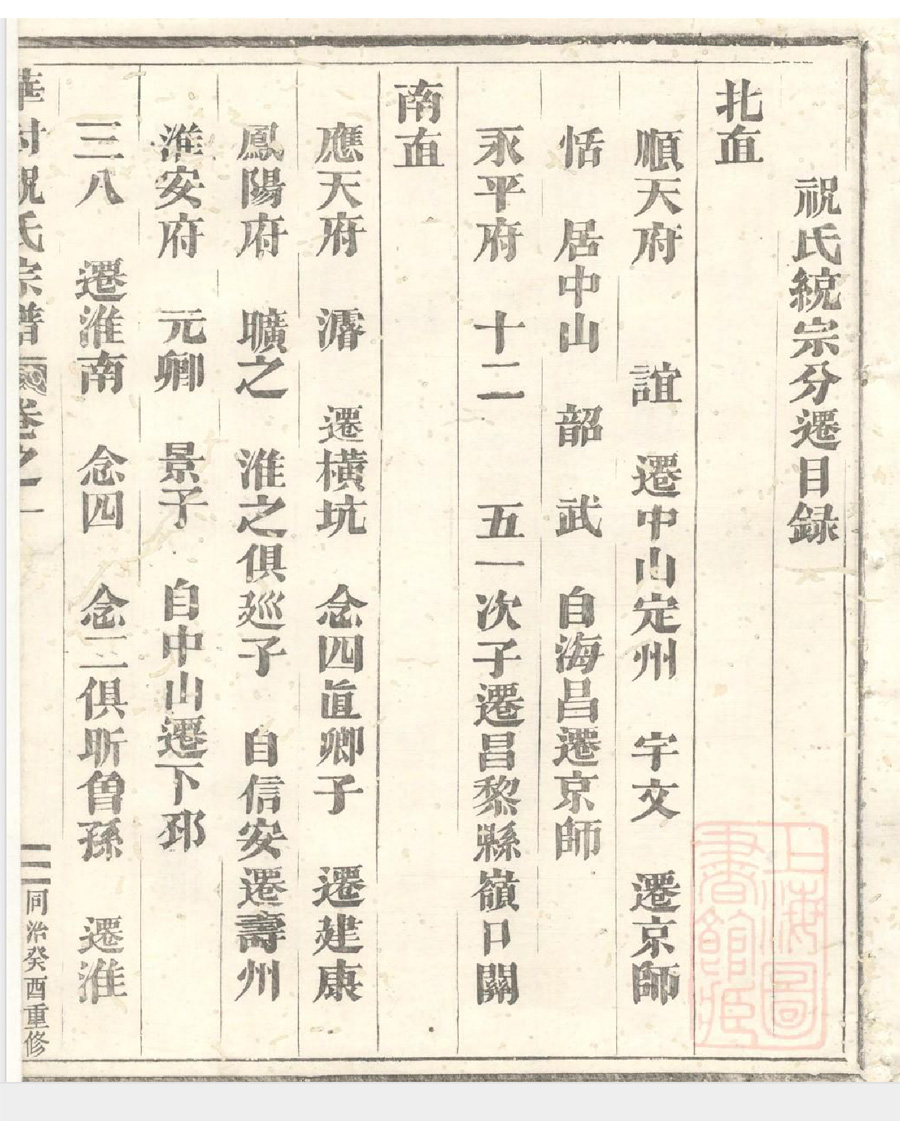 祝氏統宗分遷目録
北直
順天府 誼 遷中山定州 宇文 遷京師
恬 居中山 韶 武 自海昌遷京師
永平府 十二 五一次子遷昌黎縣嶺口關
南直
應天府 濳 遷橫坑 念四直卿子 遷建康
鳳陽府 曠之 淮之俱廵子 自信安遷壽州
淮安府 元卿 景子 自中山遷下邳
三八 遷淮南 念四 念二俱昕曾孫 遷淮
華村祝氏宗譜 卷之一 二 同治癸酉重修
上海圖書館藏